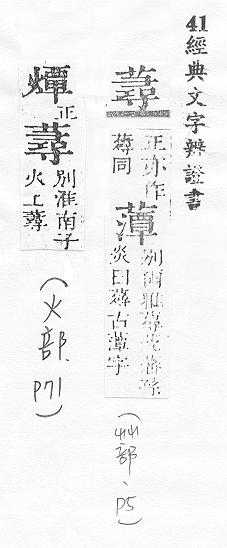 41經典文字辨證書
蕁 正亦作
蕁同
藫 別爾雅蕁海
炎曰蕁古藫字
(艸部、P5)
燂 正
蕁 別淮南子
火上蕁
(火部、P71)